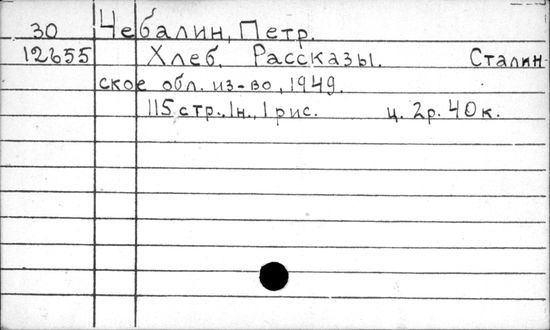 30 Чебалин, Петр.
12655 Хлеб. Рассказы. Сталин
ское обл. из-во, 1949.
115 стр., 1н., 1 рис. ц. 2р. 40к.